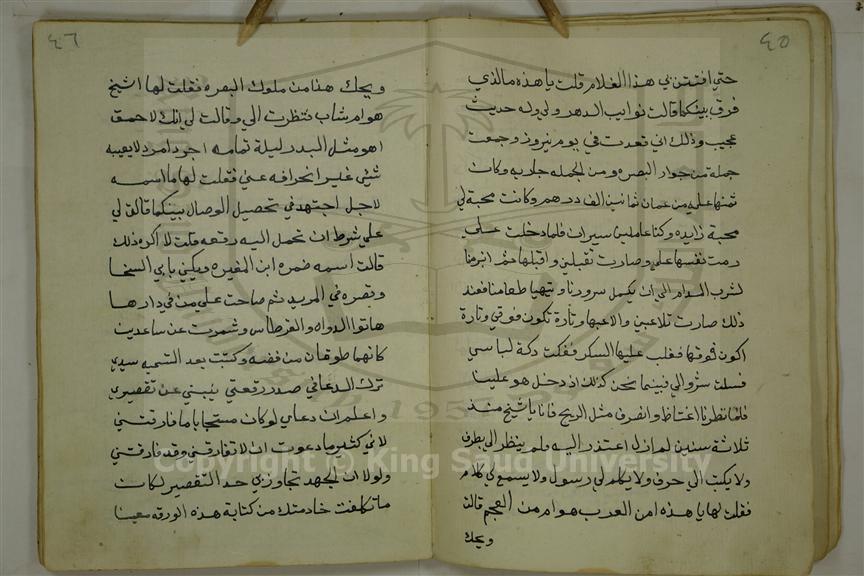 ٤٥
حتي افتتن بي هذا الغلام قلت يا هذه ما الذي
فرق بينكما قالت نوايب الدهر ولي وله حديث
عجيب وذلك اني قعدت في يوم نيروز وجمعت
جملة من جوار البصره ومن الجمله جاريه وكان
ثمنها عليه من عمان ثمانين الف درهم وكانت محبة لي
محبة زايده وكنا عاملين سيران فلما دخلت علي
رمت نفسها علي وصارت تقبلني واقبلها
لشرب المدام الي ان يكمل سرورنا ويتهيا طعامنا فعند
ذلك صارت تلاعبني والاعبها وتارة تكون فوقي وتارة
اكون فوقها فغلب عليها السكر ففكت دكة لباسي
فسلت سروالي فبينما نحن كذلك اذ دخل هو علينا
فلما نظرنا اغتاظ وانصرف مثل الريح فانا يا شيخ منذ
ثلاثة سنين لم ازل اعتذر اليه ولم ينظر الي بطرف
ولا يكتب الي حرف ولا يكلم لي رسول ولا يسمع لي كلام
فقلت لها يا هذه امن العرب هو ام من العجم قالت
ويحك
٤٦
ويحك هذا من ملوك البصره فقلت لها اشيخ
هو ام شاب فنظرت الي وقالت لي انك لاحمق
اهو مثل البدر ليلة تمامه اجرد امرد لا يعيبه
شيئ غير انحرافه عني فقلت لها ما اسمه
لاجل اجتهد في تحصيل الوصال بينكما قالت لي
علي شرط ان تحمل اليه رقعه قلت لا اكره ذلك
قالت اسمه ضمره ابن المغيره ويكني بابي السخا
وقصره في المربد ثم صاحت علي من في دارها
هاتوا الدواه والقرطاس وشمرت عن ساعدين
كانهما طوقان من فضه وكتبت بعد التسميه سيدي
ترك الدعا في صدر رقعتي ينبي عن تقصيري
واعلم ان دعاي لو كان مستجابا ما فارقتني
لاني كثير ما دعوت ان لا تفارقني وقد فارقتني
ولولا ان الجهد تجاوز بي حد التقصير لكان
ما تكلفت خادمتك من كتابة هذه الورقه معينا
Copyright © King Saud University
1957